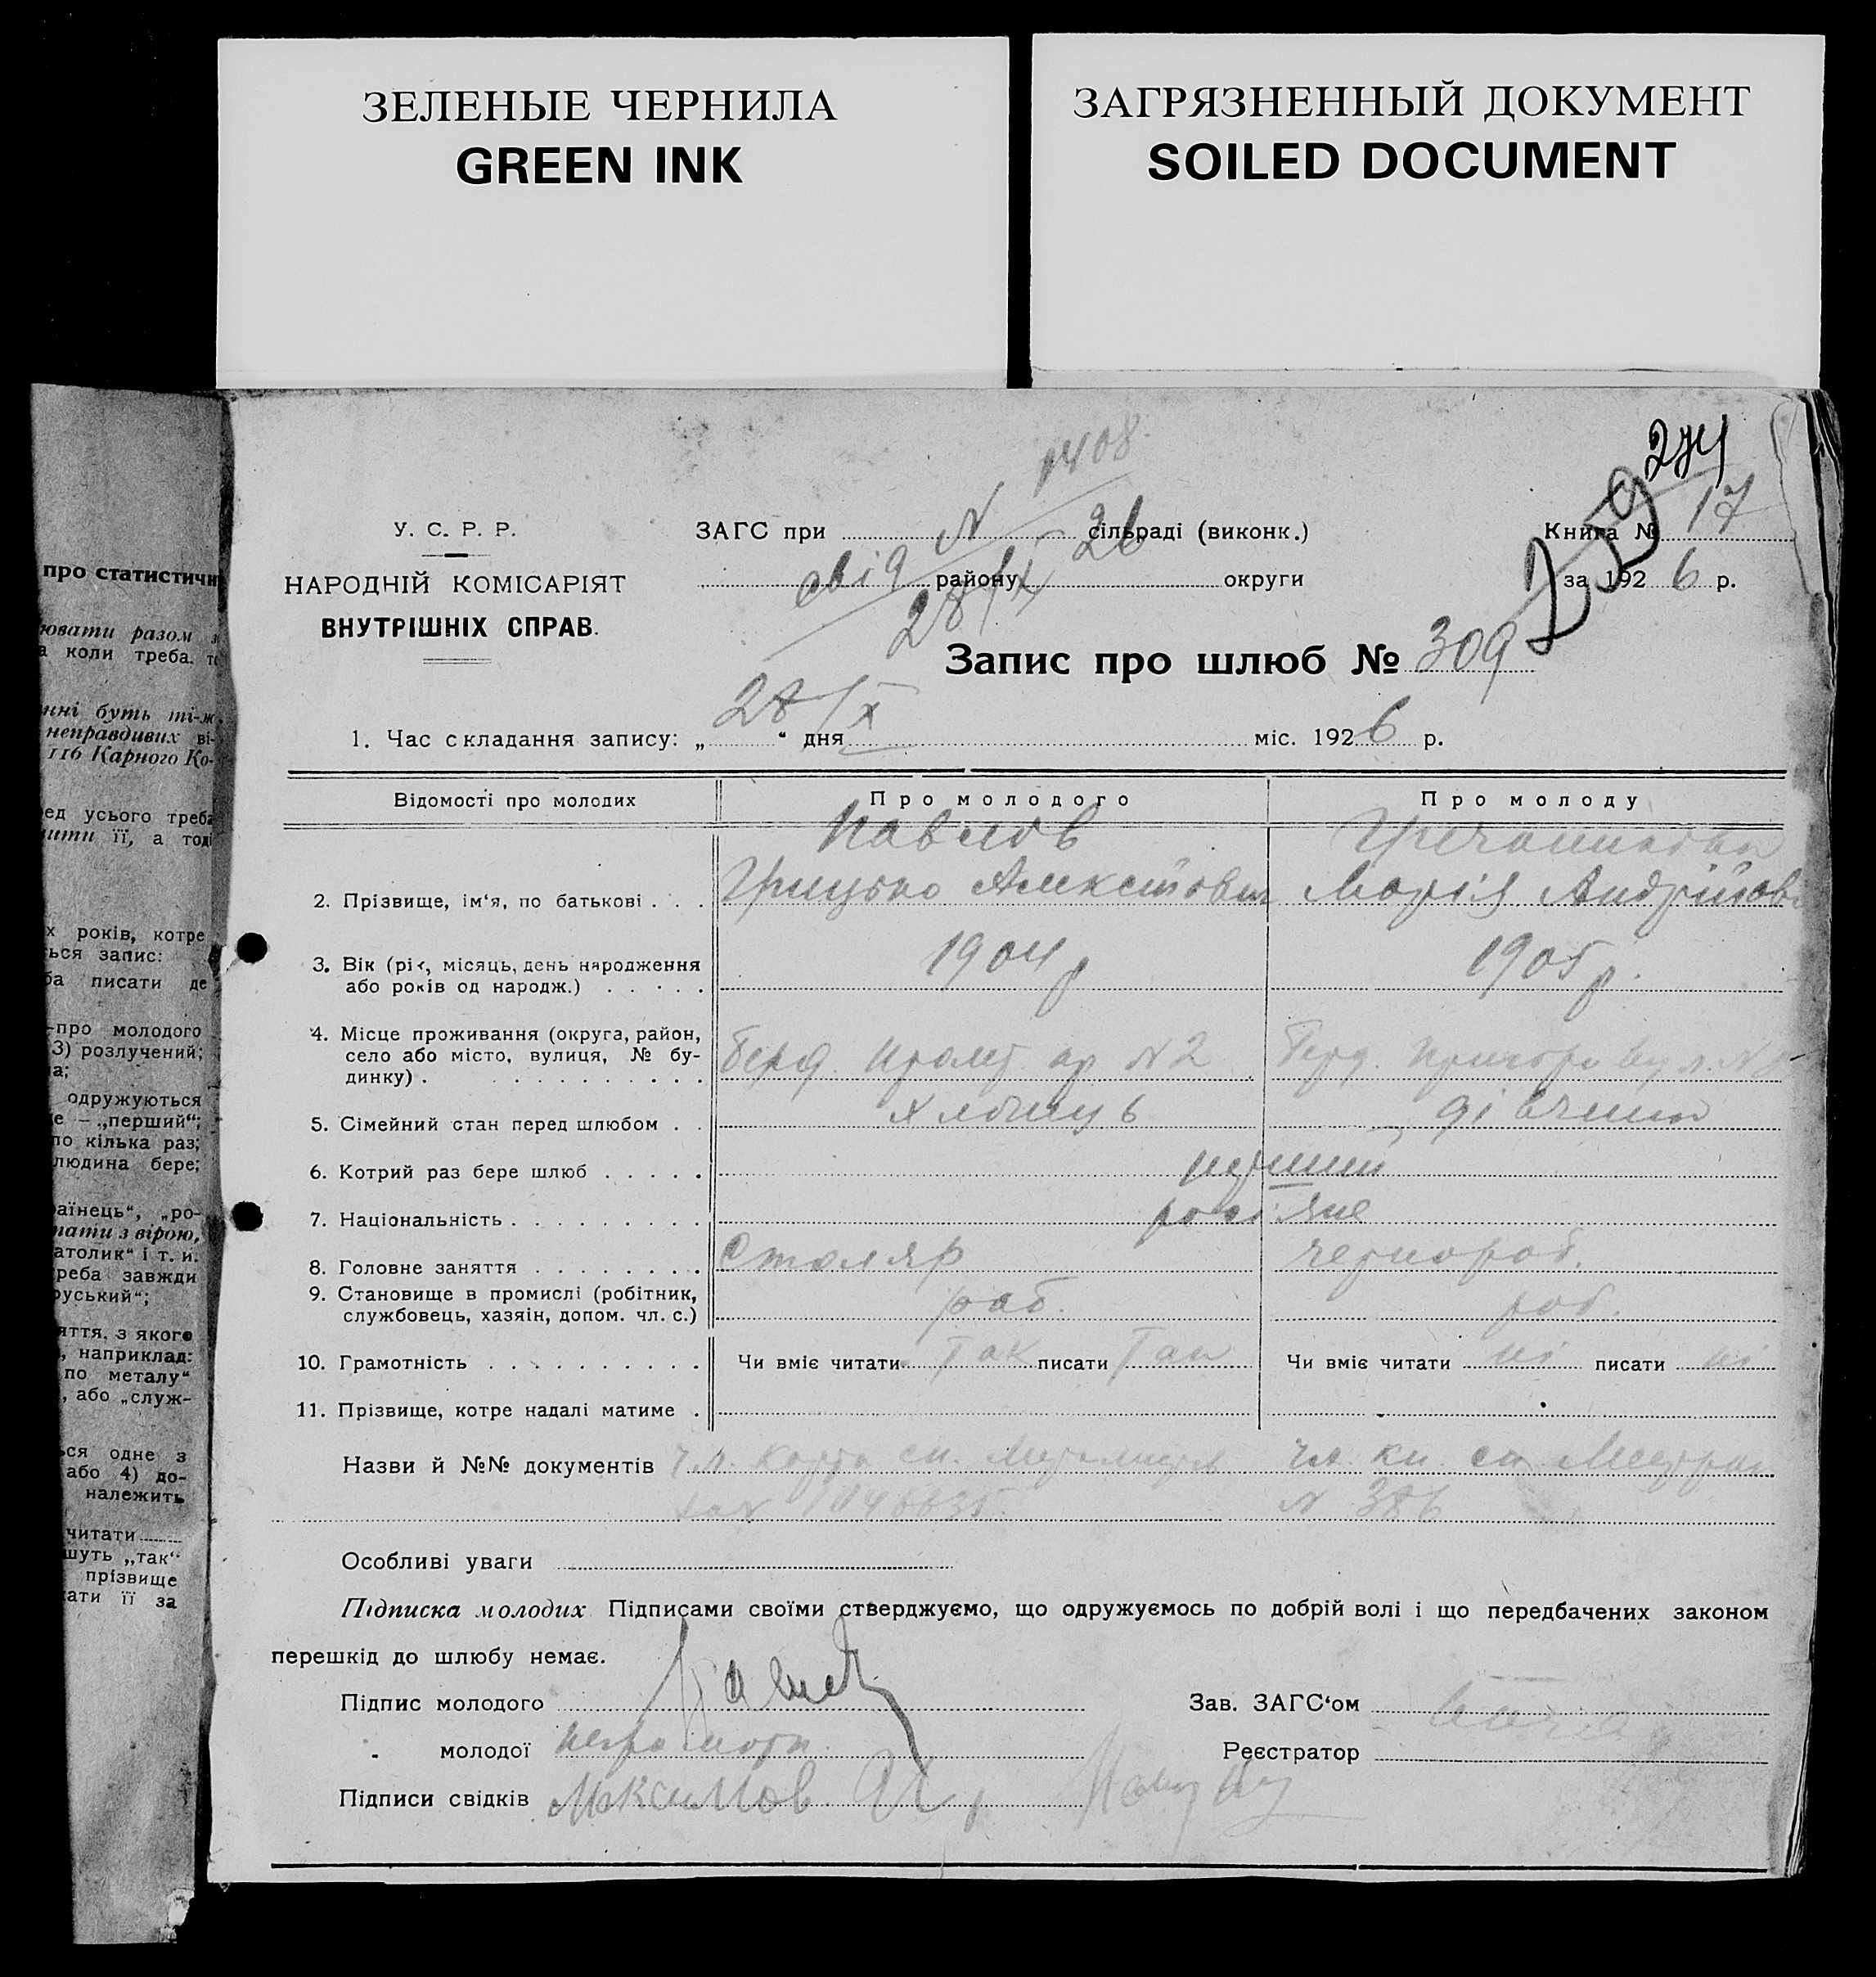 ЗЕЛЕНЫЕ ЧЕРНИЛА
GREEN INK
ЗАГРЯЗНЕННЫЙ ДОКУМЕНТ
SOILED DOCUMENT
про статистичн
ювати разом з
а коли треба. то
нні буть ті-ж
неправдивих ві-
116 Карного Ко-
ед усього треба
ити її, а тоді
х років, котре
ься запис:
ба писати де
-про молодого
3) розлучений;
а;
одружуються
е — „перший“;
по кілька раз;
людина бере;
аїнець“, „ро-
тати з вірою,
атолик“ і т. и.
реба завжди
руський“;
яття, з якого
, наприклад:
по металу“
, або „служ-
ься одне з
або 4) до-
належить
читати
шуть „так“
прізвище
ати її за
1408
274
259
У. С. Р. Р.
НАРОДНІЙ КОМІСАРІЯТ
ВНУТРІШНІХ СПРАВ.
ЗАГС при N сільраді (виконк.)
району округи
свід 28/X 26
Книга № 17
за 1926 р.
Запис про шлюб № 309
1. Час складання запису: „28/X“ дня міс. 1926 р.
Відомості про молодих Про молодого Про молоду
2. Прізвище, ім‘я, по батькові . . .
Павлов
Грицько Алексієвич
Марія Андріївна
3. Вік (рік, місяць, день народження
або років од народж.) 1904 р 1905 р.
4. Місце проживання (округа, район,
село або місто, вулиця, № бу-
динку) . Берд. N 2 Берд.
5. Сімейний стан перед шлюбом . . хлопець дівчина
6. Котрий раз бере шлюб . . . . . перший
7. Національність . . . . . . . . . росіяне
8. Головне заняття . . . . . . . . Столяр чернороб.
9. Становище в промислі (робітник,
службовець, хазяін, допом. чл. с.) роб. роб.
10. Грамотність Чи вміє читати так писати так Чи вміє читати ні писати ні
11. Прізвище, котре надалі матиме .
Назви й №№ документів чл. карта сп. Металістів чл. кн. сп.
N 386
Особливі уваги
Підписка молодих Підписами своїми стверджуємо, що одружуємось по добрій волі і що передбачених законом
перешкід до шлюбу немає.
Підпис молодого
Зав. ЗАГС‘ом
„ молодої неграмотн.
Реєстратор
Підписи свідків Максимов